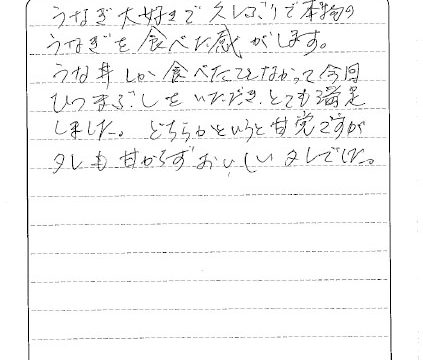 うなぎ大好きで久しぶりで本物の
うなぎを食べた感がします。
うな丼しか食べたことなかって今日
ひつまぶしをいただき、とても満足
しました。どちらかというと甘党ですが
タレも甘からずおいしいタレでした。